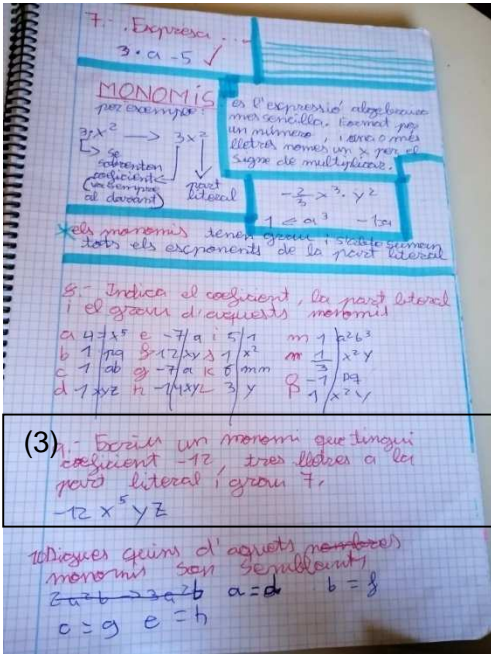 7.- Expresa ...
3·a -5 ✓
MONOMIS
per exemple:
3·x² → 3x²
coeficient
(va sempre
al davant)
part
literal
és l'expressió algebraica
mes sencilla. Format per
un número, i una o mes
lletres nomes un x per el
signe de multiplicar.
-2/3 x³·y²
*els monomis tenen grau i s'obté sumant
tots els exponents de la part literal
8.- Indica el coeficient, la part literal
i el grau d'aquests monomis
a 4 x⁵ e -7/a i 5/1 m 1/a²b³
b 1/pq f -12/xy j 1/x² n 1/3 x²y
c 1/ab g -7/a k 6/mn
d -1/xyz h -14xy l 3/y p -1/pq
1/x²y
(3)
9.- Escriu un monomi que tingui
coeficient -12, tres lletres a la
part literal i grau 7.
-12 x⁵ y z
10 Digues quins d'aquets nombres
monomis son semblants
2a²b → 3a²b a=d b=f
c=g e=h